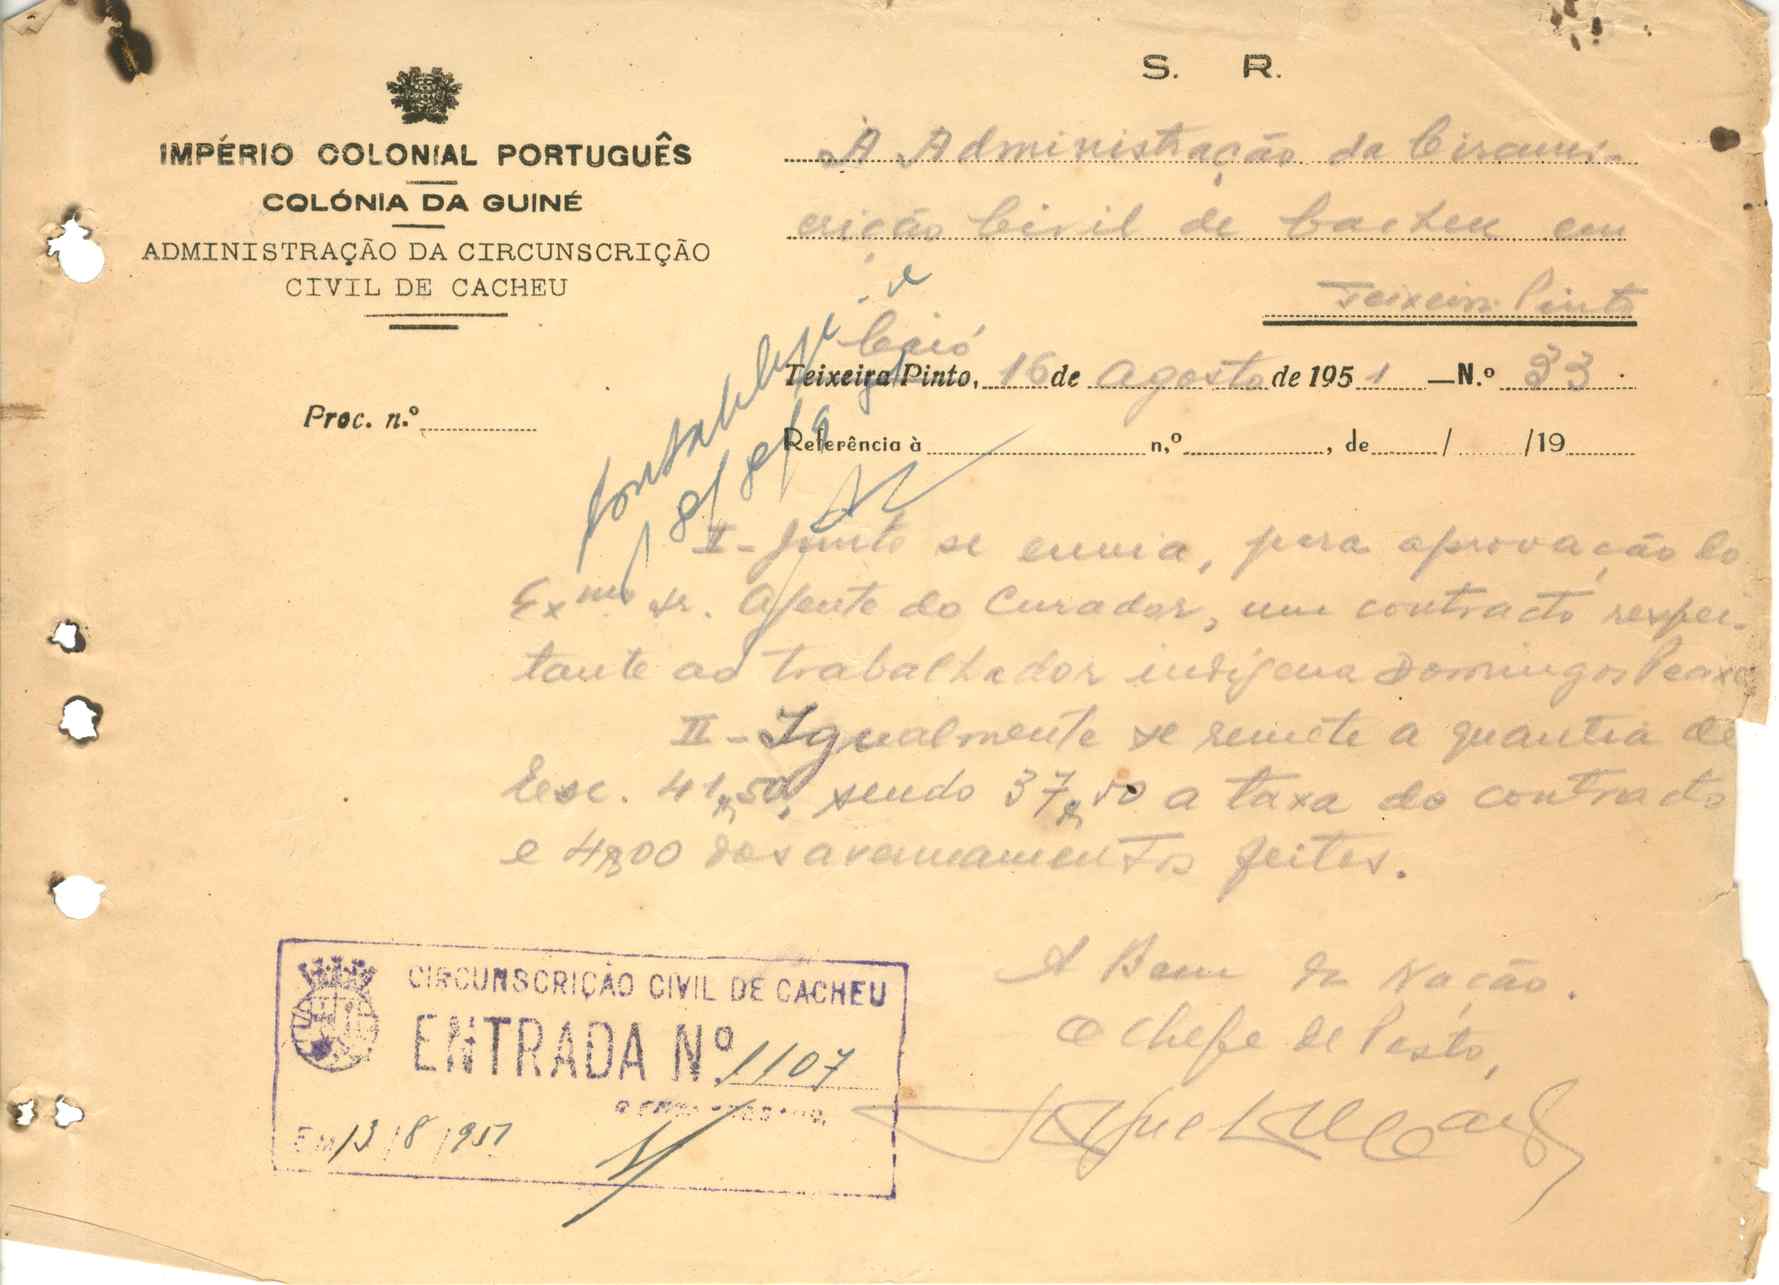 S. R.
IMPÉRIO COLONIAL PORTUGUÊS
COLÓNIA DA GUINÉ
ADMINISTRAÇÃO DA CIRCUNSCRIÇÃO
CIVIL DE CACHEU
Proc. n.º
À Administração da Circuns-
crição Civil de Cacheu em
Teixeira Pinto
Caió
Teixeira Pinto, 16 de Agosto de 1951 — N.º 33
Referência à n,º , de / /19
I - Junto se envia, para aprovação do
Exmo. Sr. Agente do Curador, um contracto respei-
tante ao trabalhador indígena Domingos
II - Igualmente se remete a quantia de
Esc. 41$50, sendo 37$50 a taxa do contracto
e 4$00 dos averbamentos feitos.
A Bem da Nação.
O Chefe de Posto,
CIRCUNSCRIÇÃO CIVIL DE CACHEU
ENTRADA Nº 1107
Em 13/8/951